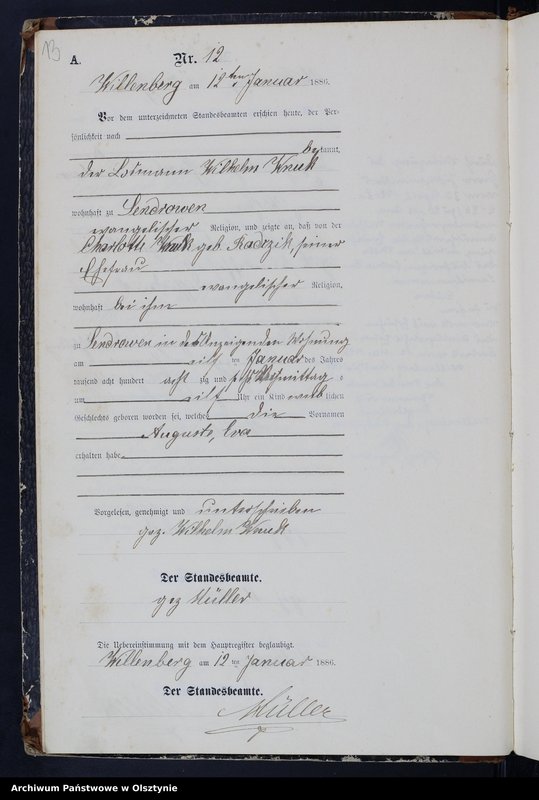 13
A. Nr. 12
Willenberg am 12ten Januar 1886.
Vor dem unterzeichneten Standesbeamten erschien heute, der Per-
sönlichkeit nach
bekannt,
der Losmann Wilhelm Knuk
wohnhaft zu Sendrowen
evangelischer Religion, und zeigte an, daß von der
Charlotte Knuk geb. Radzik, seiner
Ehefrau
evangelischer Religion,
wohnhaft bei ihm
zu Sendrowen in des Anzeigenden Wohnung
am elf ten Januar des Jahres
tausend acht hundert acht zig und sechs Vormittag s
um elf Uhr ein Kind weib lichen
Geschlechts geboren worden sei, welches die Vornamen
Auguste, Eva
erhalten habe.
Vorgelesen, genehmigt und unterschrieben
gez. Wilhelm Knuk
Der Standesbeamte.
gez Müller
Die Uebereinstimmung mit dem Hauptregister beglaubigt.
Willenberg am 12 ten Januar 1886.
Der Standesbeamte.
Müller
Archiwum Państwowe w Olsztynie